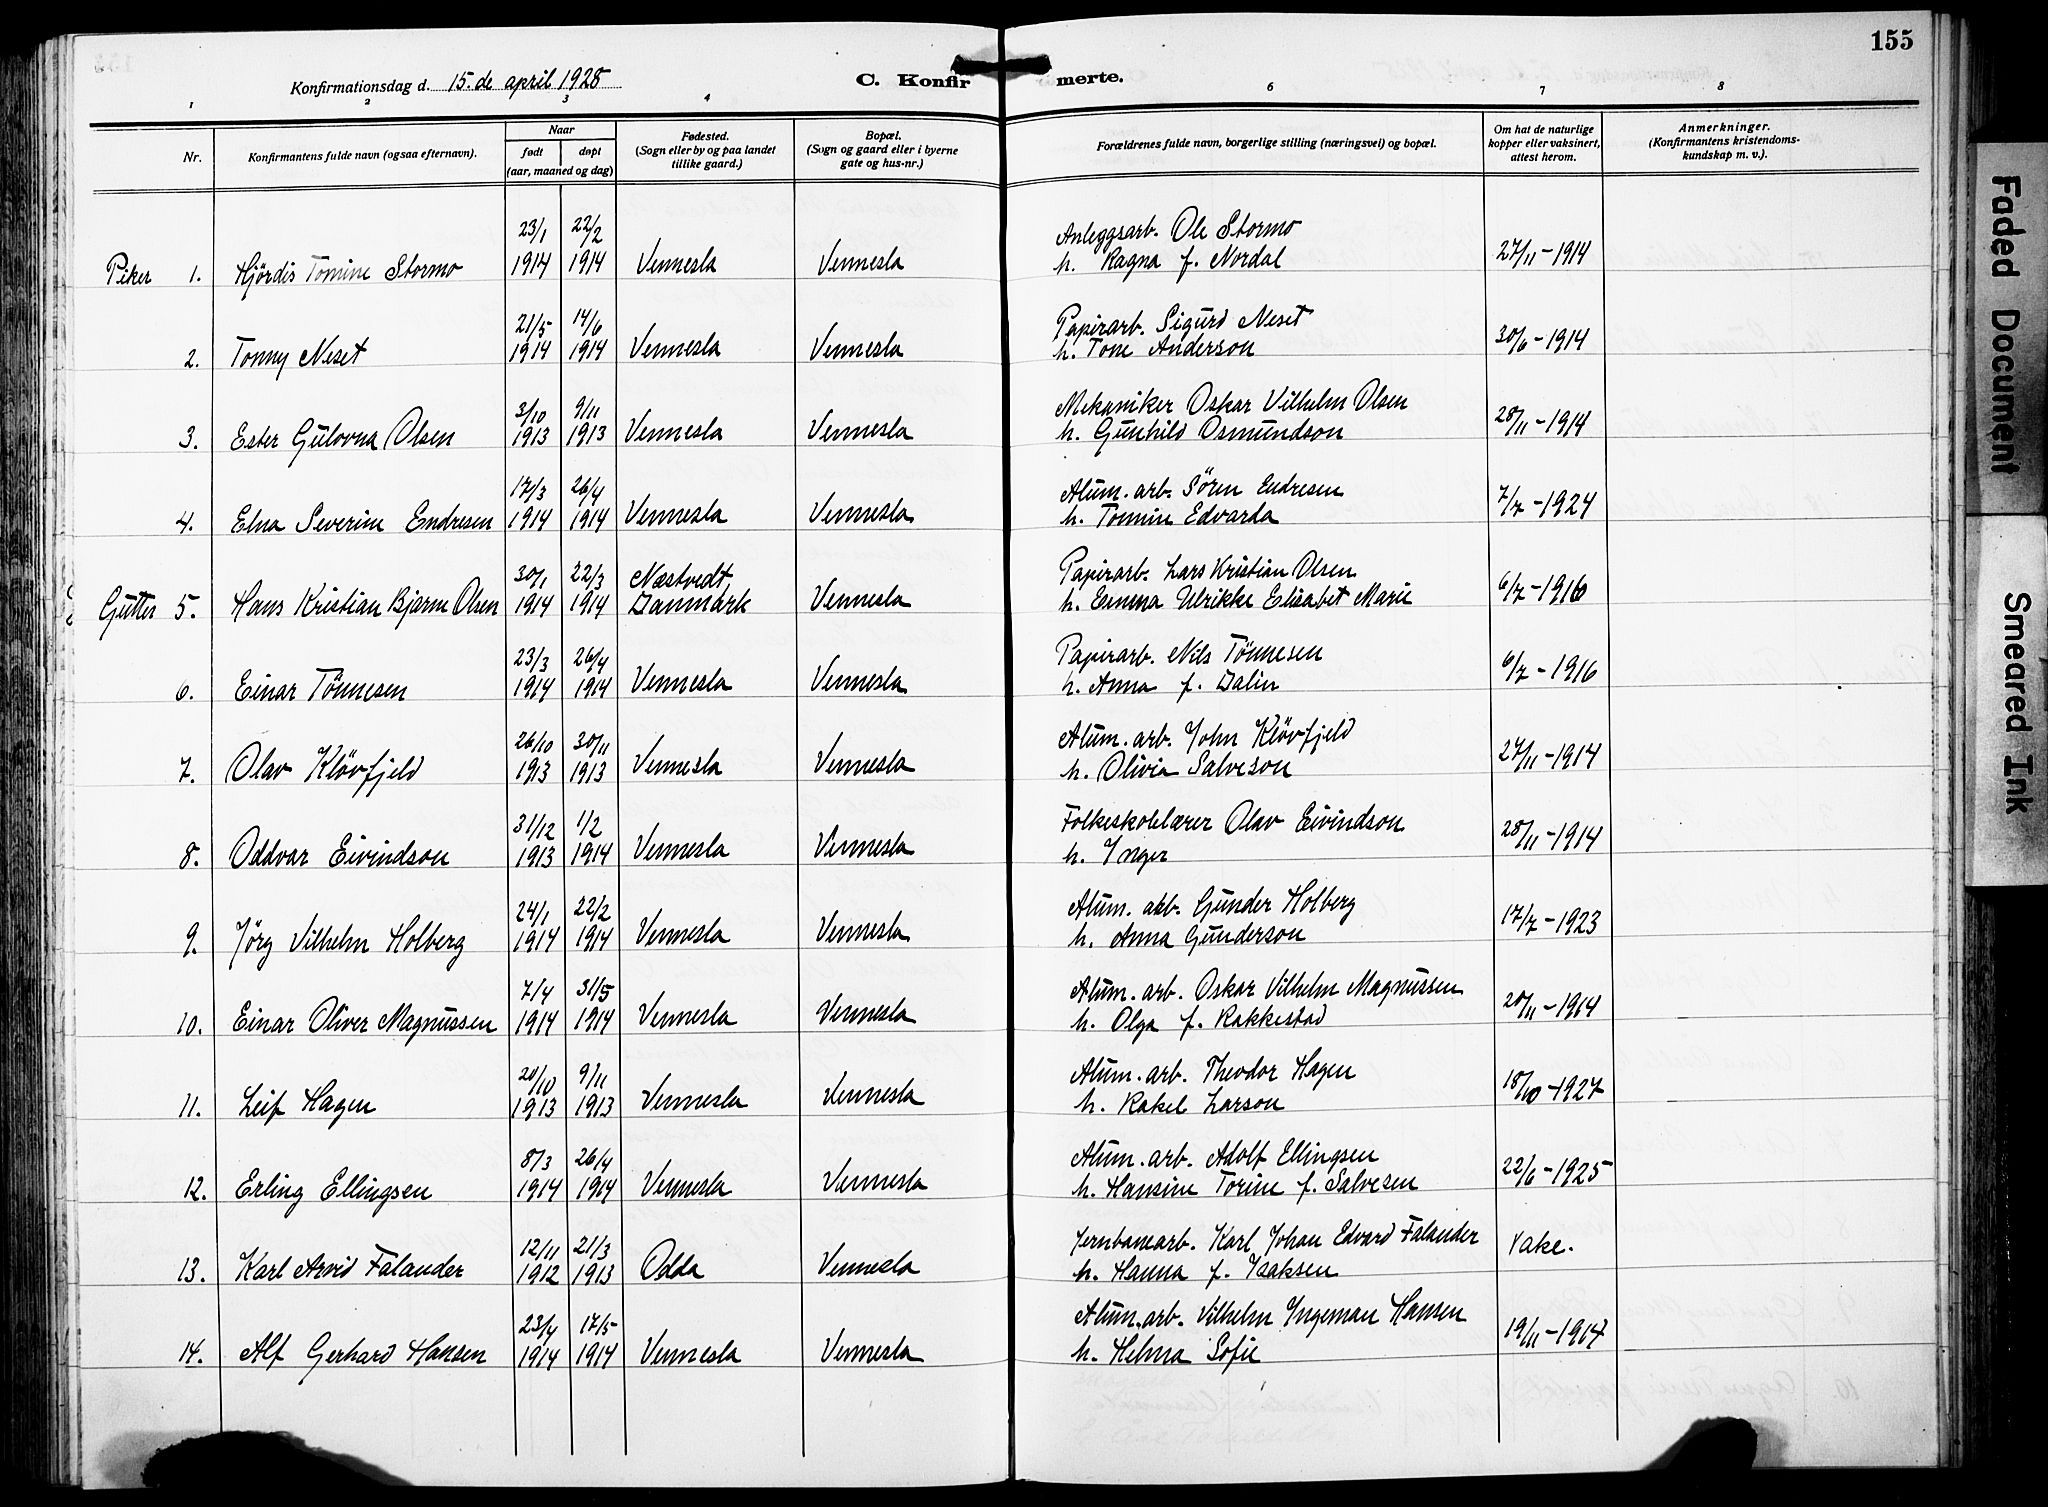 155
Konfirmationsdag d. 15. de april 1928
C. Konfirmerte.
1 2 3 4 6 7 8
Nr.
Konfirmantens fulde navn (ogsaa efternavn).
Naar
født
døpt
(aar, maaned og dag)
Fødested.
(Sogn eller by og paa landet
tillike gaard.)
Bopæl.
(Sogn og gaard eller i byerne
gate og hus-nr.)
Forældrenes fulde navn, borgerlige stilling (næringsvei) og bopæl.
Om hat de naturlige
kopper eller vaksinert,
attest herom.
Anmerkninger.
(Konfirmantens kristendoms-
kundskap m. v.).
23/1 22/2 Anleggsarb. Ole Stormo
Piker 1. Hjördis Tomine Stormo 1914 1914 Vennesla Vennesla h. Ragna f. Nordal 27/11-1914
21/5 14/6 Papirarb. Sigurd Neset
2. Tonny Neset 1914 1914 Vennesla Vennesla h. Tone Anderson 30/6-1914
3/10 9/11 Mekaniker Oskar Vilhelm Olsen
3. Ester Gulovna Olsen 1913 1913 Vennesla Vennesla h. Gunhild Osmundson 28/11-1914
17/3 26/4 Alum. arb. Sören Endresen
4. Elna Severine Endresen 1914 1914 Vennesla Vennesla h. Tomine Edvarda 7/7-1924
30/1 22/3 Næstvedt, Papirarb. Lars Kristian Olsen
Gutter 5. Hans Kristian Bjarne Olsen 1914 1914 Danmark Vennesla h. Emma Ulrikke Elisabet Marie 6/7-1916
23/3 26/4 Papirarb. Nils Tönnesen
6. Einar Tönnesen 1914 1914 Vennesla Vennesla h. Anna f. Dalin 6/7-1916
26/10 30/11 Alum. arb. John Klövfjeld
7. Olav Klövfjeld 1913 1913 Vennesla Vennesla h. Olivia Salveson 27/11-1914
31/12 1/2 Folkeskolelærer Olav Eivindson
8. Oddvar Eivindson 1913 1914 Vennesla Vennesla h. Inger 28/11-1914
24/1 22/2 Alum. arb. Gunder Holberg
9. Jörg Vilhelm Holberg 1914 1914 Vennesla Vennesla h. Anna Gunderson 17/7-1923
7/4 31/5 Alum. arb. Oskar Vilhelm Magnussen
10. Einar Oliver Magnussen 1914 1914 Vennesla Vennesla h. Olga f. Rakkestad 28/11-1914
20/10 9/11 Alum. arb. Theodor Hagen
11. Leif Hagen 1913 1913 Vennesla Vennesla h. Rakel Larson 18/10-1927
8/3 26/4 Alum. arb. Adolf Ellingsen
12. Erling Ellingsen 1914 1914 Vennesla Vennesla h. Hansine Torine f. Salvesen 22/6-1925
12/11 21/3 Jernbanearb. Karl Johan Edvard Falander
13. Karl Arvid Falander 1912 1913 Odda Vennesla h. Hanna f. Isaksen Vaks.
23/4 17/5 Alum. arb. Vilhelm Ingeman Hansen
14. Alf Gerhard Hansen 1914 1914 Vennesla Vennesla h. Helma Sofie 19/11-1917
Faded Document
Smeared Ink